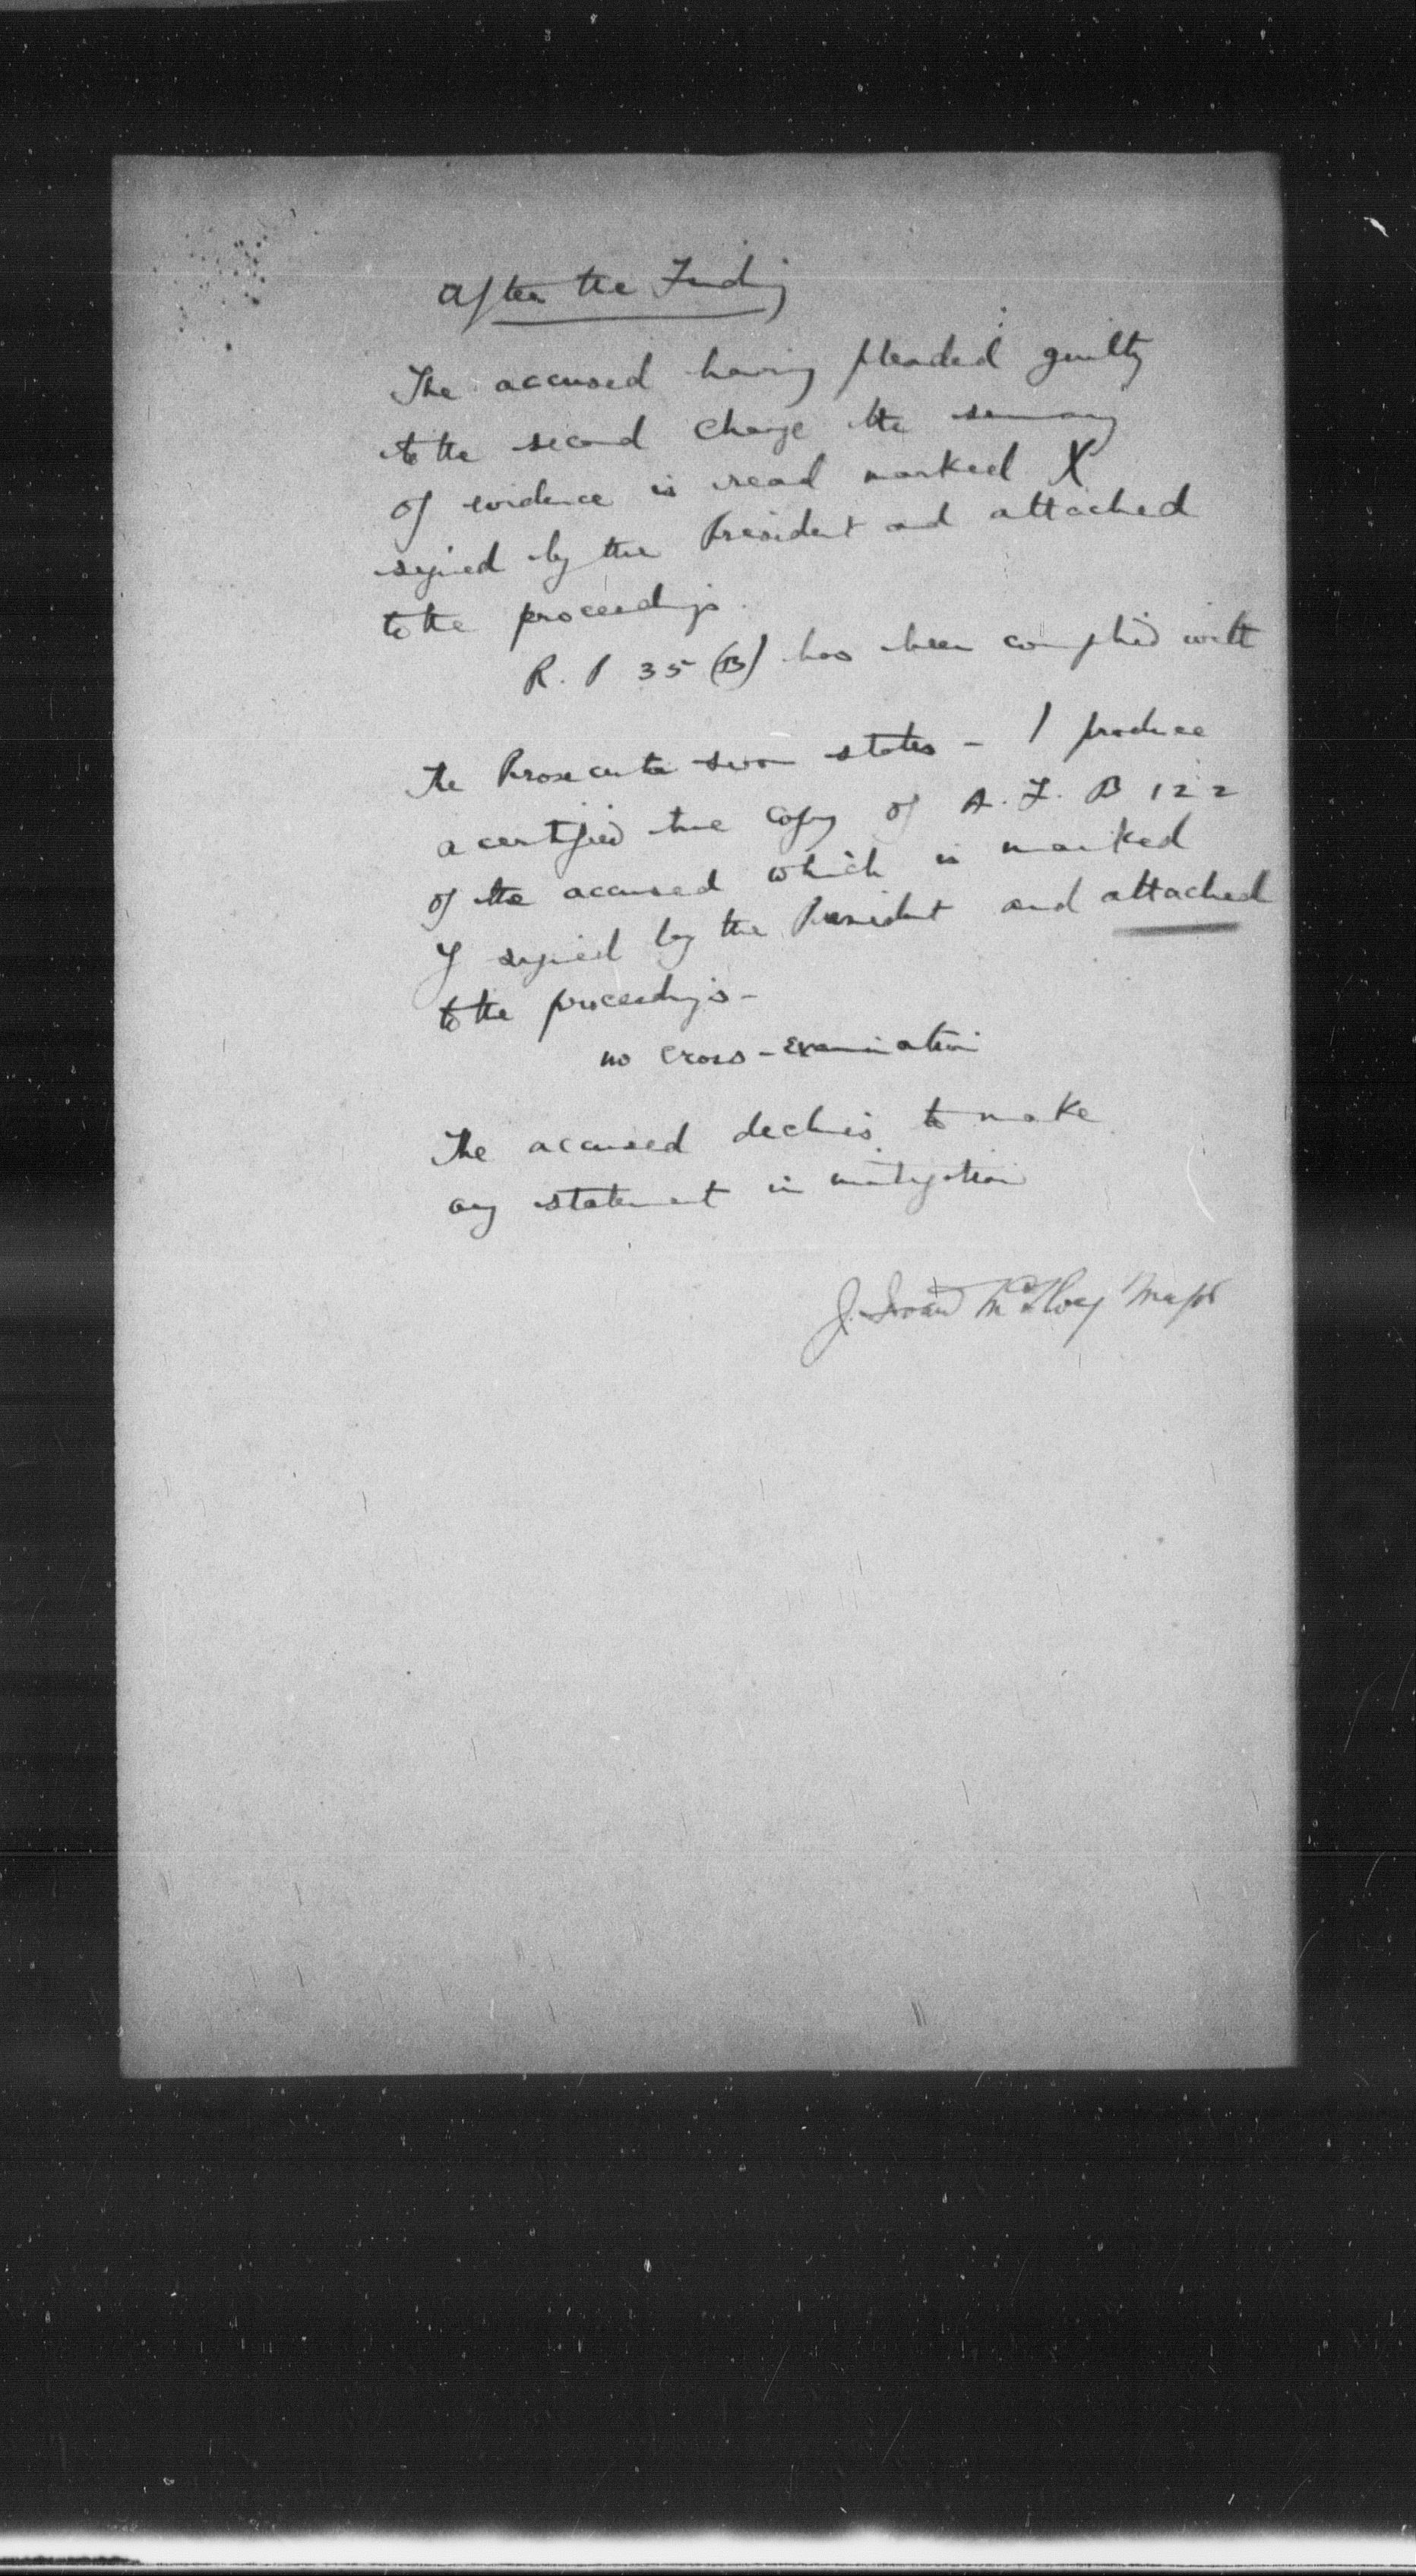 After the Finding
The accused having pleaded guilty
to the second charge the summary
of evidence is read marked X
signed by the President and attached
to the proceedings.
R. P 35 (B) has been complied with
The Prosecutor sworn states - I produce
a certified true copy of A. F. B 122
of the accused which is marked
Y signed by the President and attached
to the proceedings -
no cross-examination
The accused declines to make
any statement in mitigation
J. Major